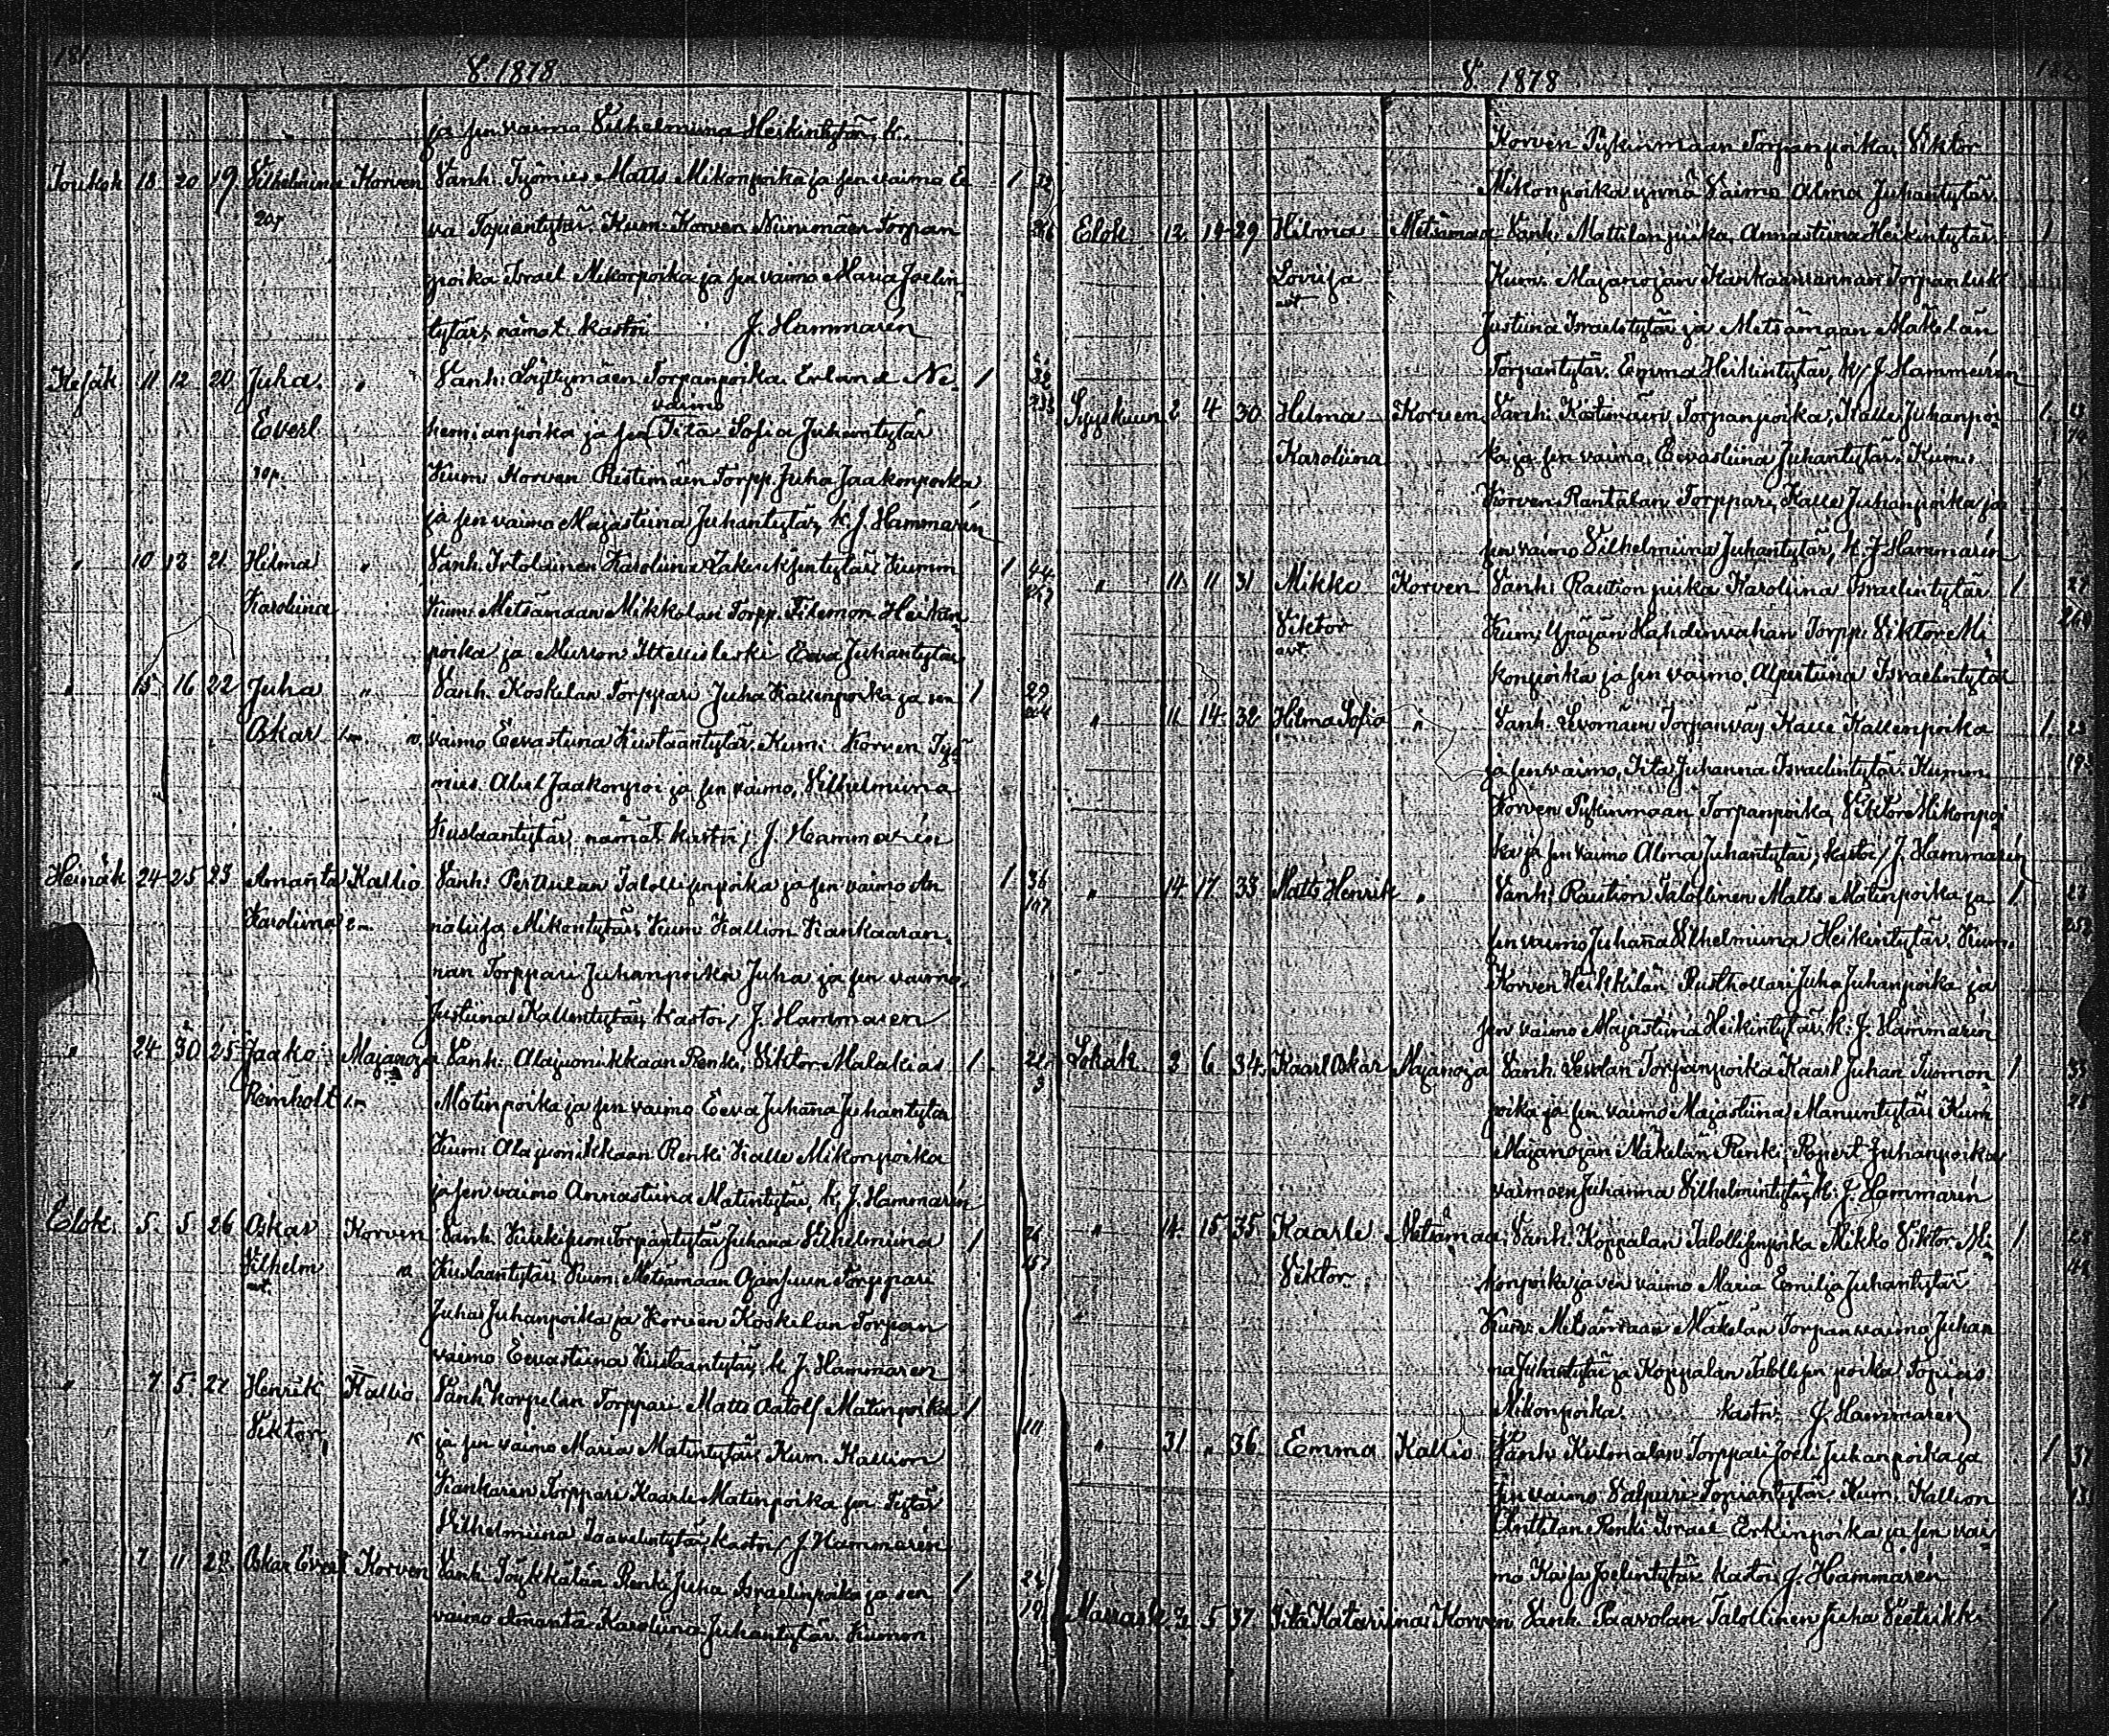 181
V. 1878
ja sen vaimo Vilhelmiina Heikintytär, k.
Toukok 18 20 19 Vilhelmiina Korven Vanh. Työmies Matts Mikonpoika ja sen vaimo Ee 1 32
va Topiantytär. Kum. Korven Niinimäen Torpan
poika Israel Mikonpoika ja sen vaimo Maria Joelin
tytär, nämät. kastoi J. Hammarén
Kesäk 11 12 20 Juha " Vanh: Löyttymäen Torpanpoika Erland Ne- 1 32
vaimo
Everl hemianpoika ja sen Iita Sofia Juhantytär
Kum. Korven Ristimäen Torpp. Juha Jaakonpoika
ja sen vaimo Majastiina Juhantytär, k. J. Hammarén
" 10 12 21 Hilma " Vanh. Irtolainen Karoliina 1 44
Karoliina Kum. Metsämaan Mikkolan Torpp. Filemon Heikin
poika ja Eeva Juhantytär
" 15 16 22 Juha " Vanh. Koskelan Torppari Juha Kallenpoika ja sen 1 29
Oskar vaimo Eevastiina Kustaantytär. Kum. Korven Työ
mies Abel Jaakonpoi ja sen vaimo, Vilhelmiina
Kustaantytär, nämät kastoi, J. Hammarén
Heinäk 24 25 23 Amanta Kallio Vanh. Perttulan Talollisenpoika ja sen vaimo An 1 36
Karoliina naliisa Mikontytär, Kum. Kallion Kankaaran
nan Torppari Juhanpoika Juha ja sen vaimo
Justiina Kallentytär, kastoi, J. Hammarén
" 24 30 25 Jaako Majanoja Vanh. Alajuonikkaan Renki, Viktor Malakias 1
Reinholt Matinpoika ja sen vaimo Eeva Juhana Juhantytär
Kum. Alajuonikkaan Renki Kalle Mikonpoika
ja sen vaimo Annastiina Matintytär, k, J. Hammarén
Elok. 5. 5 26 Oskar Korven Vanh. Torpantytär Juhana Vilhelmiina 1
Vilhelm Kustaantytär, Kum. Metsämaan Ojansuun Torppari 157
Juha Juhanpoika ja Korven Koskelan Torpan
vaimo Eevastiina Kustaantytär, k. J. Hammaren
" 7 5 27 Henrik Kallio Vanh Korpelan Torppari Matts Aatolf Matinpoika 1
Viktor ja sen vaimo Maria Matintytär, Kum. Kallion 111
Kankaren Torppari Kaarle Matinpoika sen Tytär
Vilhelmiina kastoi J. Hammarén
7 11 28 Oskar Everl Korven Vanh. Töykkälän Renki Juha Israelinpoika ja sen 1
vaimo Amanta Karoliina Juhantytär. Kumm.
V. 1878
Korven Pykinmaan Torpanpoika, Viktor
Mikonpoika ynnä Vaimo Alma Juhantytär.
Elok. 12 14 29 Hilma Metsämaa Vanh. Mattilan piika, Annastiina Heikintytär. 1
Lovisa Kum. Majanojan Kankaanrannan Torpan
Justiina Israelstytär ja Metsämaan Mäkelän
Torpantytär. Emma Heikintytär, k, J. Hammarén
Syyskuun 2 4 30 Hilma Korven Vanh. Köstimäen, Torpanpoika, Kalle Juhanpoi 1
Karoliina ka ja sen vaimo, Eevastiina Juhantytär. Kum.
Korven Rantalan Torppari, Kalle Juhanpoika ja
sen vaimo Vilhelmiina Juhantytär, k. J Hammarén
" 11 11 31 Mikko Korven Vanh. Raution piika Karoliina Israelintytär 1
Viktor Kum. Ypäjän Torpp. Viktor Mi
konpoika ja sen vaimo, Alpertiina Israelintytär
" 11. 14. 32. Hilma Sofia " Vanh. Levomäen Torpanväy Kalle Kallenpoika 1
ja sen vaimo, Iita Juhanna Israelintytär. Kumm.
Korven Pykinmaan Torpanpoika, Viktor Mikonpoi
ka ja sen vaimo Alma Juhantytär, kastoi, J. Hammarén
" 14. 17. 33 Matts Henrik " Vanh: Raution Talollinen Matts. Matinpoika ja 1
sen vaimo Juhanna Vilhelmiina Heikintytär, Kum.
Korven Heikkilän Rusthollari Juha Juhanpoika ja
sen vaimo Majastiina Heikintytär, k. J. Hammarén
Lokak. 3 6 34. Kaarl Oskar Majanoja Vanh. Torpanpoika Kaarl Juhan Tuomon 1
poika ja sen vaimo Majastiina Manuntytär, Kum
Majanojan Mäkelän Renki, Ropert Juhanpoika
vaimoen Juhanna Vilhelmintytär, k. J. Hammarén
" 14. 15. 35. Kaarle Metsämaa Vanh. Koppalan Talollisenpoika Mikko Viktor Mi 1
Viktor konpoika ja sen vaimo Maria Emilja Juhantytär
Kum. Metsämaan Mäkelän Torpanvaimo Juhan
na Juhantytär ja Koppalan Talollisen poika Topias
Mikonpoika. kastoi J. Hammarén
" 31 " 36. Emma Kallio Vanh. Kulmalan Torppari Joeli Juhanpoika ja 1 37
sen vaimo Valpuri Topiantytär. Kum. Kallion
Anttilan Renki Israel Erkinpoika ja sen vai
mo Kaisa Joelintytär kastoi J. Hammarén
Marrask 5 37. Iita Katariina Korven Vanh. Paavolan Talollinen Juha 1